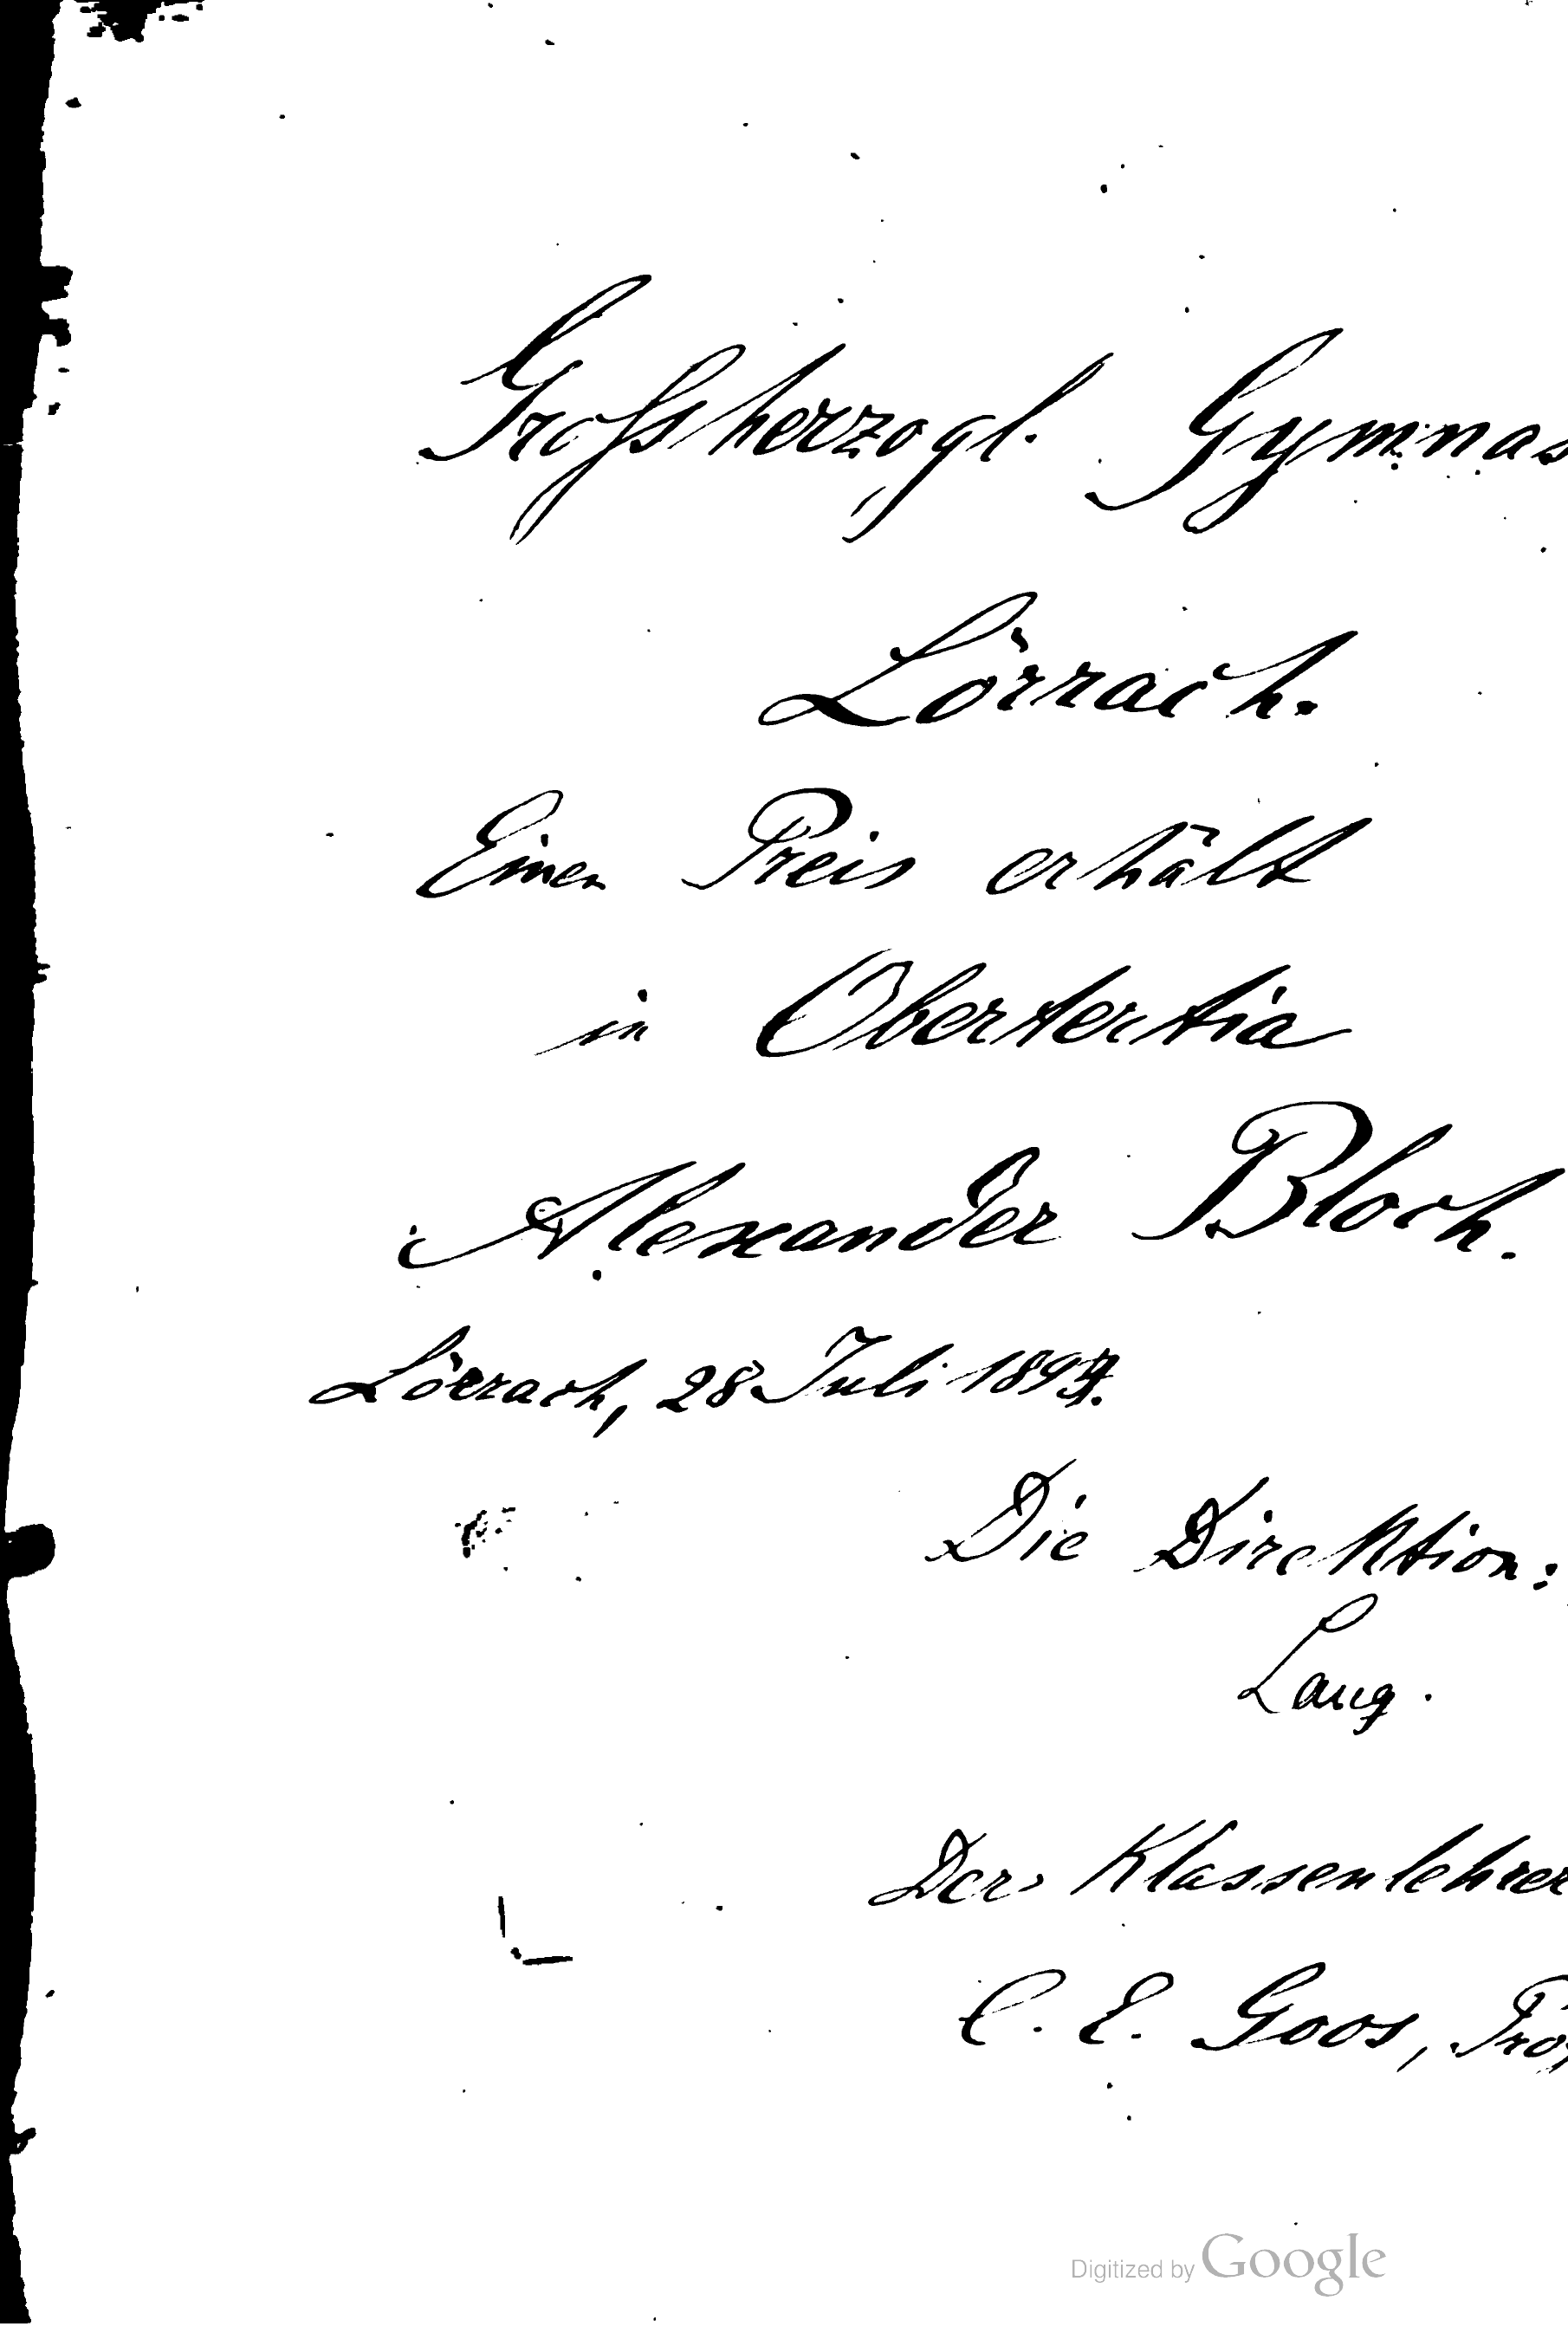 Großherzogl. Gymnas
Lörrach.
Einen Preis erhält
in Obertertia
Alexander Bloch.
Lörrach, 28 Juli 1894.
Die Direktion:
Lang.
Der Klassenlehrer
C. E. Goos, Prof
Digitized by Google